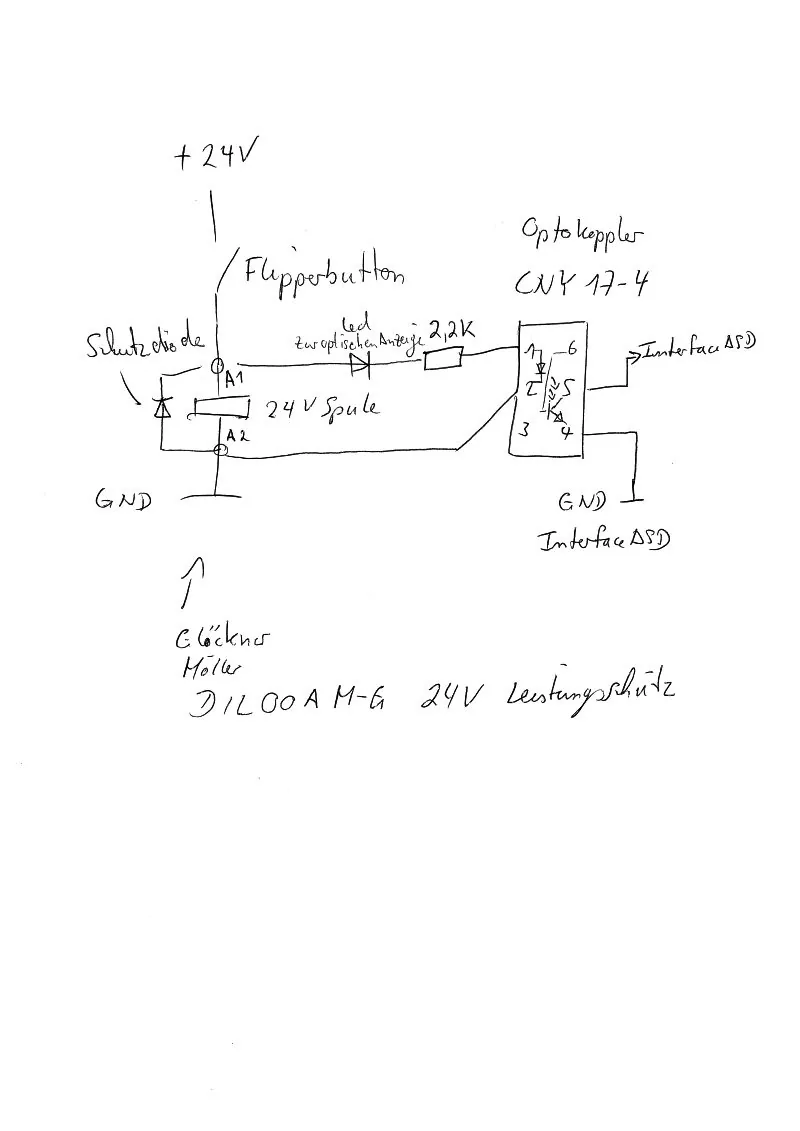 + 24V
Flipperbutton
Optokoppler
CNY 17-4
Schutzdiode
led
zur optischen Anzeige
2,2K
1 6
2 5
3 4
Interface ASD
A1
24V Spule
A2
GND
GND
Interface ASD
Glöckner
Möller
DIL00A M-G 24V Leistungsschütz